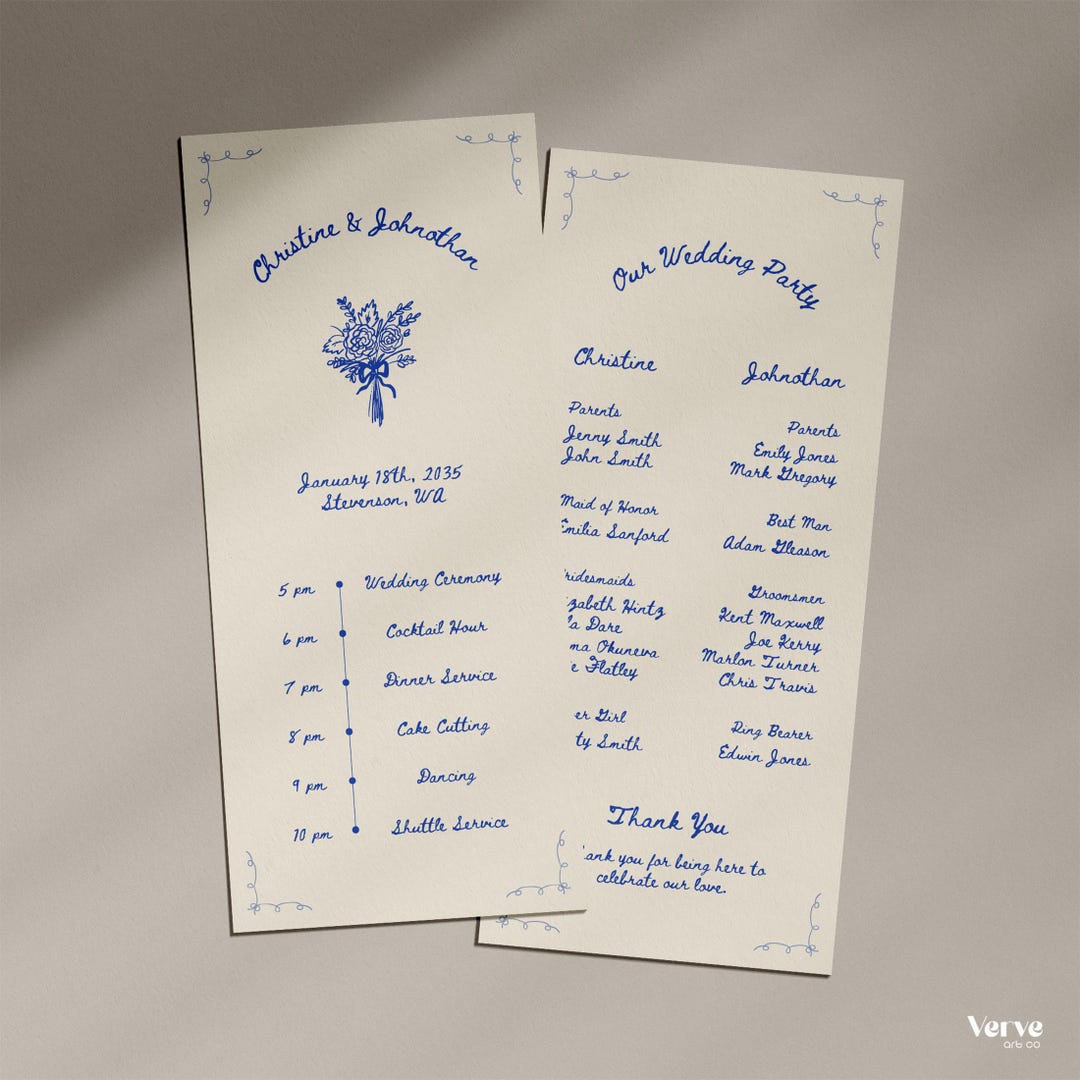 Christine & Johnothan
January 18th, 2035
Stevenson, WA
5 pm Wedding Ceremony
6 pm Cocktail Hour
7 pm Dinner Service
8 pm Cake Cutting
9 pm Dancing
10 pm Shuttle Service
Our Wedding Party
Christine
Parents
Jenny Smith
John Smith
Maid of Honor
Emilia Sanford
ridesmaids
zabeth Hintz
a Dare
ma Okuneva
e Flatley
er Girl
ty Smith
Johnothan
Parents
Emily Jones
Mark Gregory
Best Man
Adam Gleason
Groomsmen
Kent Maxwell
Joe Kerry
Marlon Turner
Chris Travis
Ring Bearer
Edwin Jones
Thank You
ank you for being here to
celebrate our love.
Verve
art co